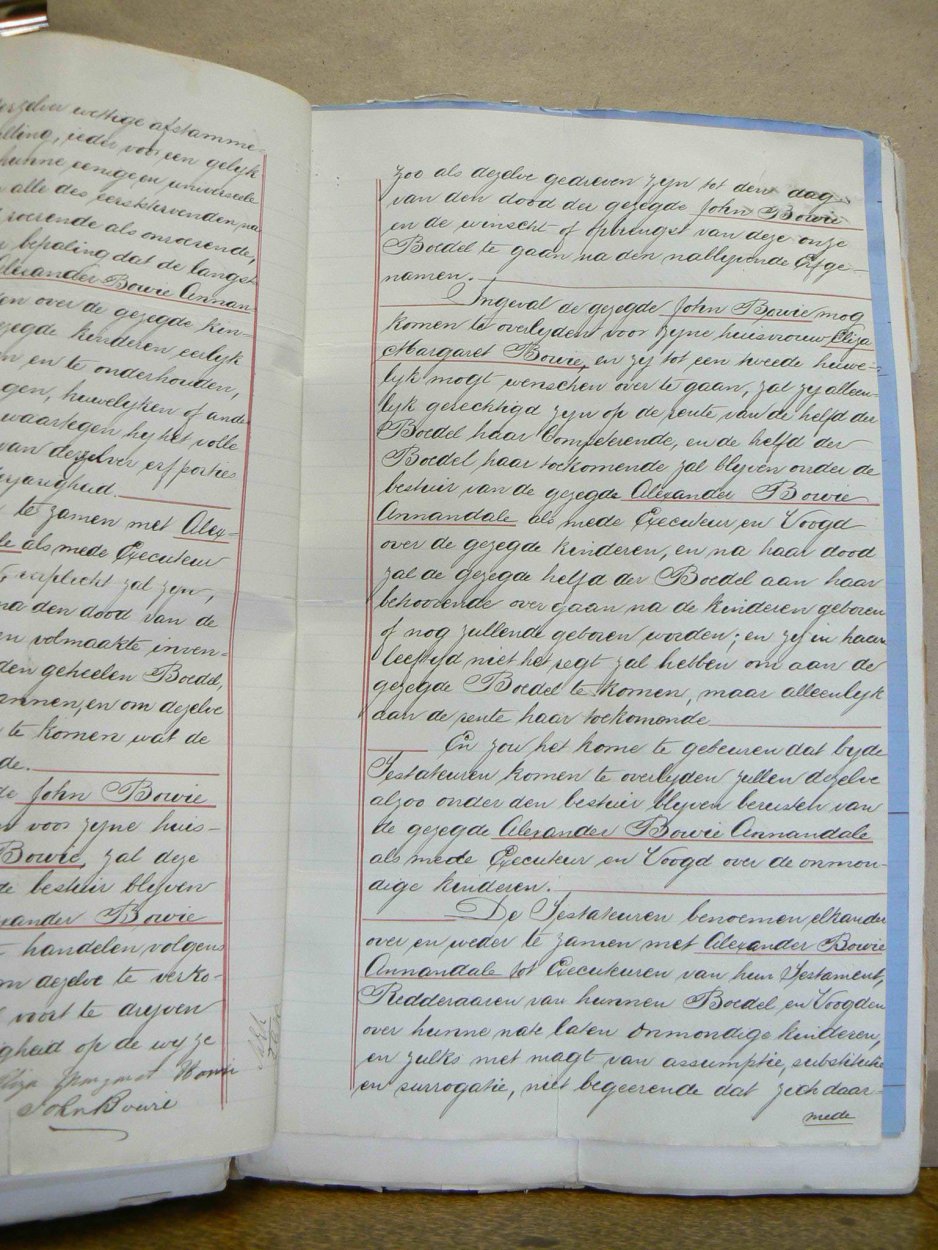 derzelver wettige afstamme-
lling, ieder voor een gelyk
hunne eenige en universeele
alle des eerststervenden na
roerende als onroerende,
bepaling dat de langst
Alexander Bowie Annan-
en over de gezegde kin-
gezegde kinderen eerlyk
en te onderhouden,
gen, huwelyken of ande
waartegen hy het volle
van derzelver erfporties
jarigheid.
te zamen met Alex-
als mede Executeur
verplicht zal zyn,
na den dood van de
en volmaakte inven-
den geheelen Boedel,
annen, en om dezelve
te komen wat de
de.
de John Bowie
voor zyne huis-
Bowie, zal deze
de bestuir blyven
xander Bowie
handelen volgens
om dezelve te verko-
voort te dryven
igheid op de wyze
Eliza Margaret Bowie
John Bowie
zoo als dezelve gedreven zyn tot den dag
van den dood der gezegde John Bowie
en de winscht of opbrengst van deze onze
Boedel te gaan na den nablyvende Erfge-
namen.
Ingeval de gezegde John Bowie mog
komen te overlyden voor zyne huisvrouw Eliza
Margaret Bowie, en zy tot een tweede huwe-
lyk mogt wenschen over te gaan, zal zy alleen-
lyk gerechtigd zyn op de rente van de helfd der
Boedel haar Competerende, en de helfd der
Boedel haar toekomende zal blyven onder de
bestuir van de gezegde Alexander Bowie
Annandale als mede Executeur en Voogd
over de gezegde kinderen, en na haar dood
zal de gezegde helfd der Boedel aan haar
behoorende over gaan na de kinderen geboren
of nog zullende geboren worden; en zy in haar
leeftyd niet het regt zal hebben om aan de
gezegde Boedel te komen, maar alleenlyk
aan de rente haar toekomende
En zou het kome te gebeuren dat byde
Testateuren komen te overlyden zullen dezelve
alzoo onder den bestuir blyven berusten van
de gezegde Alexander Bowie Annandale
als mede Executeur en Voogd over de onmon-
dige kinderen.
De Testateuren benoemen elkander
over en weder te zamen met Alexander Bowie
Annandale tot Executeuren van hun Testament,
Redderaaren van hunnen Boedel en Voogden
over hunne nate laten onmondige kinderen,
en zulks met magt van assumptie, substitutie
en surrogatie, niet begeerende dat zich daar-
mede